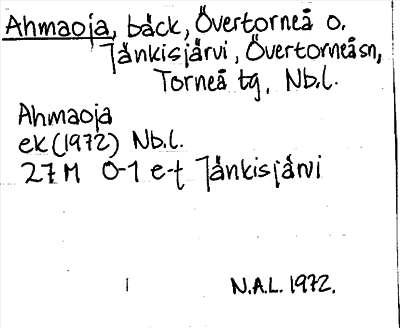 Ahmaoja, bäck, Övertorneå o.
Jänkisjärvi, Övertorneå sn,
Torneå tg, Nb.l.
Ahmaoja
ek (1972) Nb.l.
27M 0-1 e-f Jänkisjärvi
1 N.A.L. 1972.